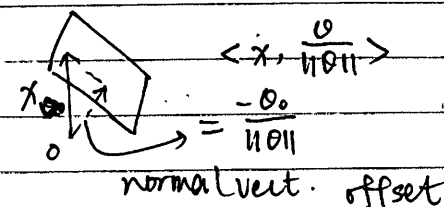 < x, θ/||θ|| >
x
= -θ₀/||θ||
0
normal vect. offset